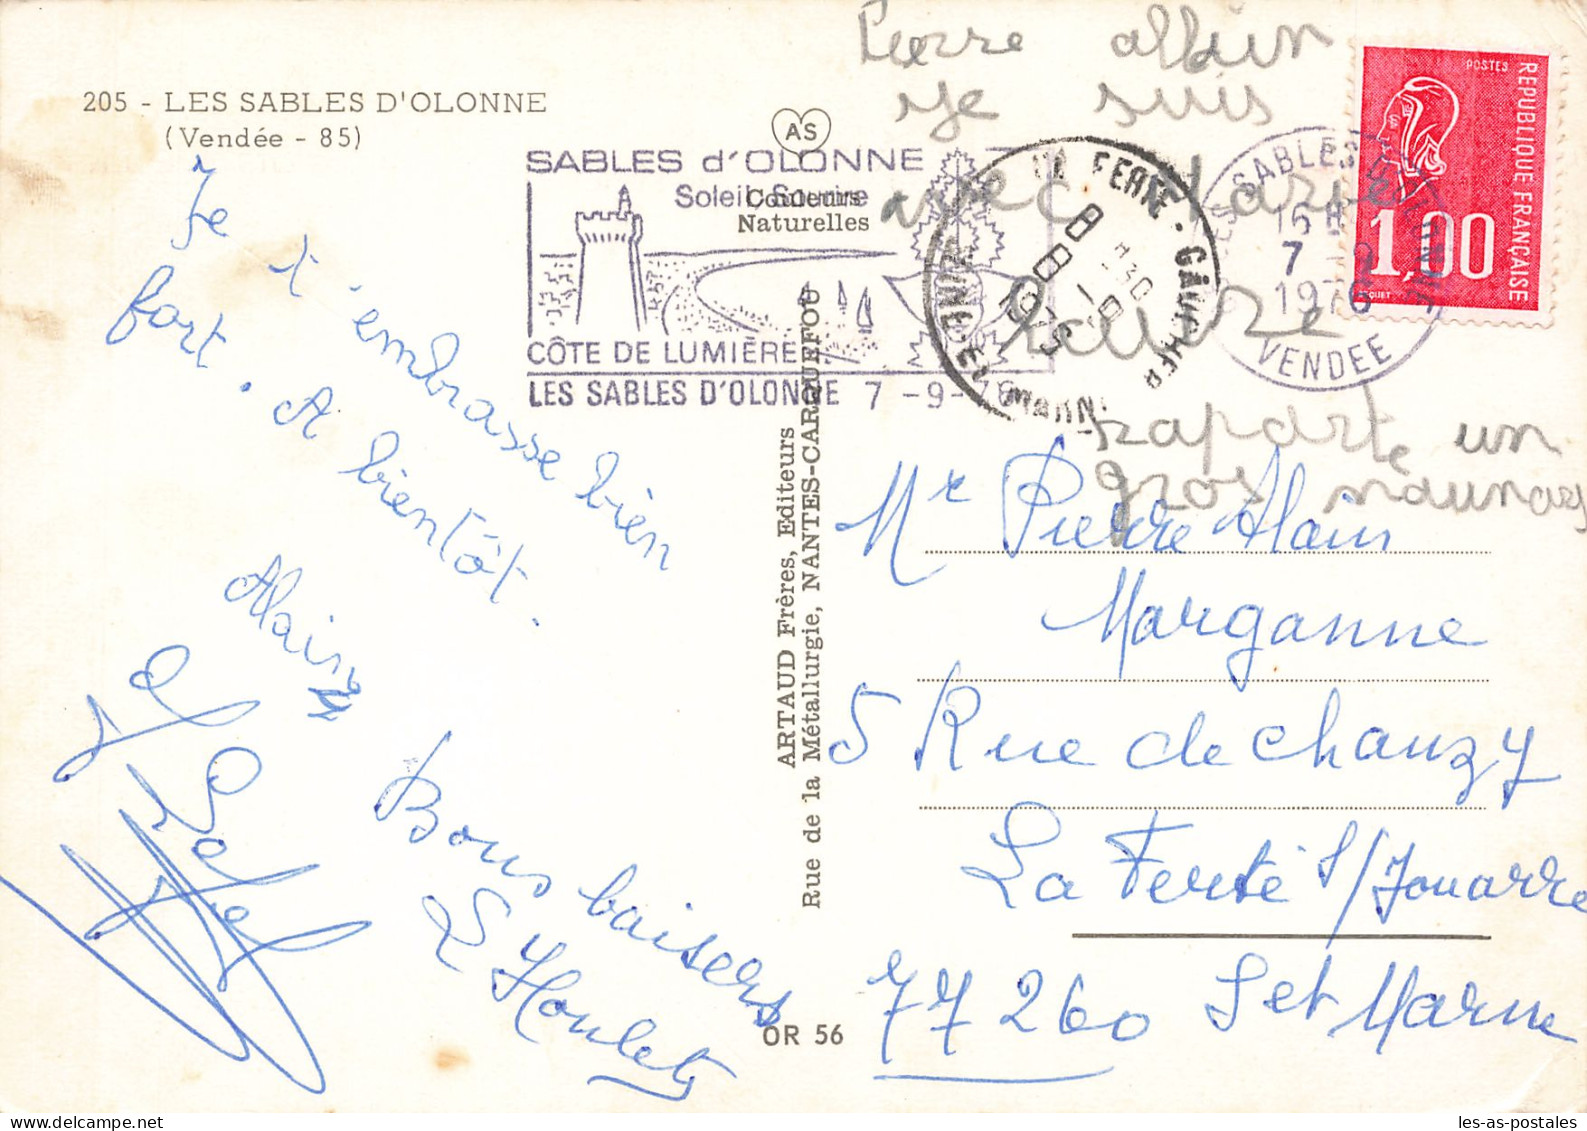 205 - LES SABLES D'OLONNE
(Vendée - 85)
AS
Couleurs
Naturelles
SABLES d'OLONNE
Soleil, Sourire
CÔTE DE LUMIÈRE
LES SABLES D'OLONNE 7 -9-76
LES SABLES D'OLONNE
16 H
7 - 9
1976
VENDEE
LA FERTE-GAUCHER
SEINE-ET-MARNE
POSTES
REPUBLIQUE FRANÇAISE
1,00
Pierre albin
je suis
avec
rapporte un
gros
Je t'embrasse bien
fort. A bientôt.
Alain
Bons baisers
ARTAUD Frères, Editeurs
Rue de la Métallurgie, NANTES-CARQUEFOU
OR 56
Mr Pierre Alain
Marganne
5 Rue de Chanzy
La Ferté s/Jouarre
77260 S et Marne
les-as-postales